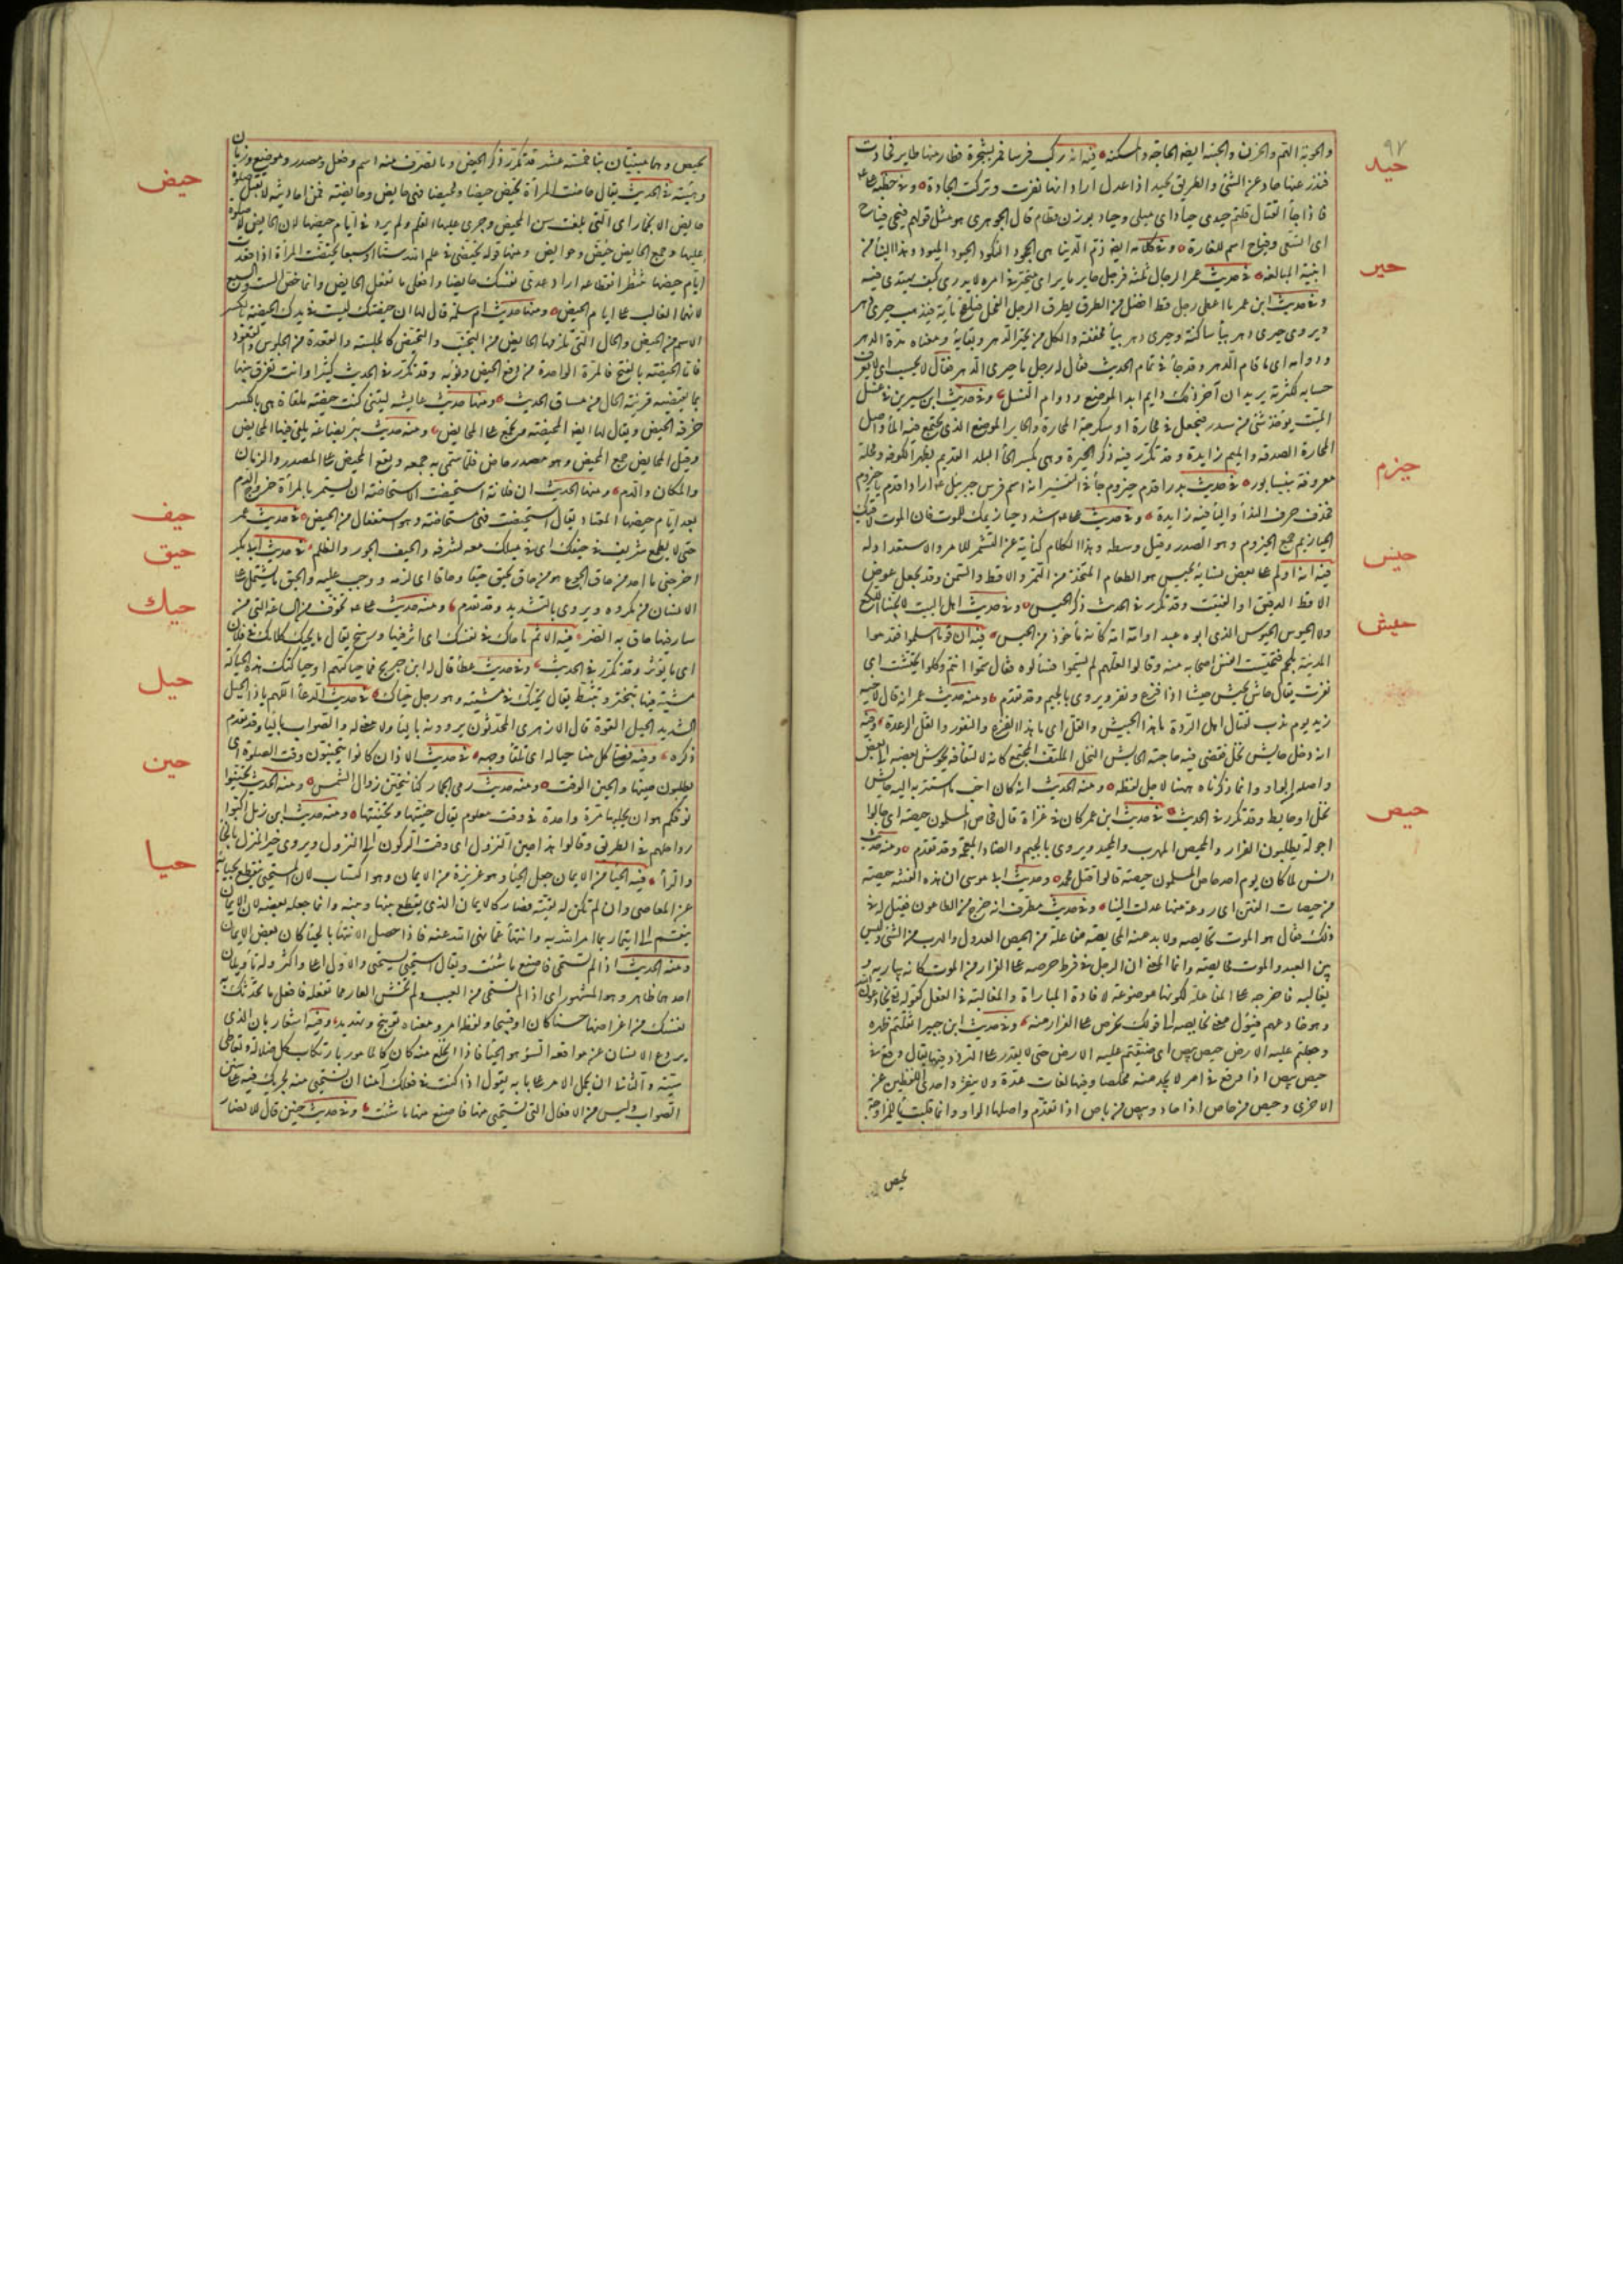 ٩٧
حيد
والحوبة الهم والحزن والحيبة ايضا الحاجة والمسكنة فيه انه ركب فرسا فمر بشجرة فطار منها طاير فحادت
فندر عنها حاد عن الشئ والطريق يحيد اذا عدل اراد انها نفرت وتركت الجادة وفي خطبة علي
فاذا جاء القتال قلتم حيدي حياد اي ميلي وحياد بوزن قطام قال الجوهري هو مثل قولهم فيحي فياح
اي اتسعي وفياح اسم للغارة وفي كلامه ايضا في ذم الدنيا هي الجحود الكنود الحيود الميود وهذا البناء من
حير
ابنية المبالغة في حديث عمر الرجال ثلثة فرجل حاير باير اي متحير في امره لا يدري كيف يهتدي فيه
وفي حديث ابن عمر ما اعطي رجل قط افضل من الطرق يطرق الرجل الفحل فيلقح مأية فيذهب حيري دهر
ويروى حيري دهر بياء ساكنة وحيري دهر بياء مخففة والكل من تحير الدهر وبقائه ومعناه مدة الدهر
ودوامه اي ما قام الدهر وقد جاء في تمام الحديث فقال له رجل ما حيري الدهر فقال لا يحسب اي لا يعرف
حسابه لكثرته يريد ان آخر ذلك دايم ابدا لموضع دوام النسل وفي حديث ابن سيرين في غسل
الميت يؤخذ شئ من سدر فيجعل في محارة او سكرجة المحارة والحاير الموضع الذي يجتمع فيه الماء واصل
المحارة الصدفة والميم زايدة وقد تكرر فيه ذكر الحيرة وهي بكسر الحاء البلد القديم بظهر الكوفة ومحلة
حيزم
معروفة بنيسابور في حديث بدر اقدم حيزوم جاء في التفسير انه اسم فرس جبريل عم اراد اقدم يا حيزوم
فحذف حرف النداء والياء فيه زايدة وفي حديث علي اشدد حيازيمك للموت فان الموت لاقيك
الحيازيم جمع الحيزوم وهو الصدر وقيل وسطه وهذا الكلام كناية عن التشمر للامر والاستعداد له
حيس
فيه انه اولم على بعض نسائه بحيس هو الطعام المتخذ من التمر والاقط والسمن وقد يجعل عوض
الاقط الدقيق او الفتيت وقد تكرر في الحديث ذكر الحيس وفي حديث اهل البيت لا يحبنا اللكع
حيش
ولا المحيوس المحيوس الذي ابوه عبد وامه امة كأنه مأخوذ من الحيس فيه ان قوما اسلموا فقدموا
المدينة بلحم فتحيشت انفس اصحابه منه وقالوا لعلهم لم يسموا فسألوه فقال سموا انتم وكلوا تحيشت اي
نفرت يقال حاش يحيش حيشا اذا فزع ونفر ويروى بالجيم وقد تقدم ومنه حديث عمر انه قال لاخيه
زيد يوم ندب لقتال اهل الردة ما هذا الحيش والقل اي ما هذا الفزع والنفور والقل الرعدة وفيه
انه دخل حايش نخل فقضى فيه حاجته الحايش النخل الملتف المجتمع كانه لالتفافه يحوش بعضه الى بعض
واصله الواو وانما ذكرناه ههنا لاجل لفظه ومنه الحديث انه كان احب ما استتر به اليه حايش
حيص
نخل او حايط وقد تكرر في الحديث في حديث ابن عمر كان في غزاة قال فحاص المسلمون حيصة اي جالوا
جولة يطلبون الفرار والمحيص المهرب والمحيد ويروى بالجيم والضاد المعجمة وقد تقدم ومنه حديث
انس لما كان يوم احد حاص المسلمون حيصة قالوا قتل محمد وحديث ابي موسى ان هذه الفتنة حيصة
من حيصات الفتن اي روغة منها عدلت الينا وفي حديث مطرف انه خرج من الطاعون فقيل له في
ذلك فقال هو الموت نحايصه ولا بد منه المحايصة مفاعلة من الحيص العدول والهرب من الشئ وليس
بين العبد والموت محايصة وانما المعنى ان الرجل في فرط حرصه على الفرار من الموت كانه يباريه و
يغالبه فاخرجه على المفاعلة لكونها موضوعة لافادة المباراة والمغالبة في الفعل كقوله يخادعون الله
وهو خادعهم فيؤل معنى نحايصه الى قولك نحرص على الفرار منه وفي حديث ابن جبير اثقلتم ظهره
وجعلتم عليه الارض حيص بيص اي ضيقتم عليه الارض حتى لا يقدر على التردد فيها يقال وقع في
حيص بيص اذا وقع في امر لا يجد منه مخلصا وفيها لغات عدة ولا ينفرد احد اللفظين عن
الاخرى وحيص من حاص اذا حاد وبيص من باص اذا تقدم واصلها الواو وانما قلبت ياء للمزاوجة
بحيص
بحيص وهما مبنيتان بناء خمسة عشر قد تكرر ذكر الحيض وما تصرف منه اسم وفعل ومصدر وموضع وزمان
حيض
وهيئة في الحديث يقال حاضت المرأة تحيض حيضا ومحيضا فهي حايض وحايضة فمن احاديثه لا تقبل صلوة
حايض الا بخمار اي التي بلغت سن المحيض وجرى عليها القلم ولم يرد في ايام حيضها لان الحايض لا صلوة
عليها وجمع الحايض حيض وحوايض ومنها قوله تحيضي في علم الله ستا او سبعا تحيضت المرأة اذا قعدت
ايام حيضها تنتظر انقطاعه اراد عدي نفسك حايضا وافعلي ما تفعل الحايض وانما خص الست والسبع
لانها الغالب على ايام الحيض ومنها حديث ام سلمة قال لها ان حيضتك ليست في يدك الحيضة بالكسر
الاسم من الحيض والحال التي تلزمها الحايض من التجنب والتحيض كالجلسة والقعدة من الجلوس والقعود
فاما الحيضة بالفتح فالمرة الواحدة من دفع الحيض ونوبه وقد تكرر في الحديث كثيرا وانت تفرق بينها
بما تقتضيه قرينة الحال من مساق الحديث ومنها حديث عايشة ليتني كنت حيضة ملقاة هي بالكسر
خرقة الحيض ويقال لها ايضا المحيضة وتجمع على المحايض ومنه حديث بئر بضاعة يلقى فيها المحايض
وقيل المحايض جمع المحيض وهو مصدر حاض فلما سمي به جمعه ويقع المحيض على المصدر والزمان
والمكان والدم ومنها الحديث ان فلانة استحيضت الاستحاضة ان يستمر بالمرأة خروج الدم
حيف
بعد ايام حيضها المعتاد يقال استحيضت فهي مستحاضة وهو استفعال من الحيض في حديث عمر
حيق
حتى لا يطمع شريف في حيفك اي في ميلك معه لشرفه والحيف الجور والظلم في حديث ابي بكر
اخرجني ما اجد من حاق الجوع هو من حاق يحيق حيقا وحاقا اي لزمه ووجب عليه والحيق ما يشتمل على
حيك
الانسان من مكروه ويروى بالتشديد وقد تقدم ومنه حديث علي تخوف من الساعة التي من
سار فيها حاق به الضر فيه الاثم ما حاك في نفسك اي اثر فيها ورسخ يقال ما يحيك كلامك في فلان
اي ما يؤثر وقد تكرر في الحديث وفي حديث عطاء قال له ابن جريج فما حياكتهم او حياكتك هذه الحياكة
حيل
مشية فيها تبختر وتثبط يقال تحيك في مشيته وهو رجل حياك في حديث الدعاء اللهم يا ذا الحيل
الشديد الحيل القوة قال الازهري المحدثون يروونه بالباء ولا معنى له والصواب بالياء وقد تقدم
حين
ذكره وفيه فصلى كل منا حياله اي تلقاء وجهه في حديث الاذان كانوا يتحينون وقت الصلوة اي
يطلبون حينها والحين الوقت ومنه حديث رمي الجمار كنا نتحين زوال الشمس ومنه الحديث تحينوا
نوقكم هو ان يحلبها مرة واحدة في وقت معلوم يقال حينتها وتحينتها ومنه حديث ابن زمل اكبوا
رواحلهم في الطريق وقالوا هذا حين النزول اي وقت الركون الى النزول ويروى خير المنزل بالخاء
حيا
والراء فيه الحياء من الايمان جعل الحياء وهو غريزة من الايمان وهو اكتساب لان المستحيي ينقطع بحيائه
عن المعاصي وان لم تكن له تقية فصار كالايمان الذي يقطع بينها وبينه وانما جعله بعضه لان الايمان
ينقسم الى ايتمار بما امر الله به وانتهاء عما نهى الله عنه فاذا حصل الانتهاء بالحياء كان بعض الايمان
ومنه الحديث اذا لم تستحي فاصنع ما شئت ويقال استحيى يستحيي والاول اعلى واكثر وله تأويلان
احدهما ظاهر وهو المشهور اي اذا لم تستحي من العيب ولم تخش العار مما تفعله فافعل ما تحدثك به
نفسك من اغراضها حسنا كان او قبيحا ولفظه امر ومعناه توبيخ وتهديد وفيه اشعار بان الذي
يردع الانسان عن مواقعة السوء هو الحياء فاذا انخلع منه كان كالمأمور بارتكاب كل ضلالة وتعاطي
سيئة والثاني ان يحمل الامر على بابه يقول اذا كنت في فعلك آمنا ان تستحيي منه لجريك فيه على سنن
الصواب وليس من الافعال التي تستحيي منها فاصنع منها ما شئت وفي حديث حنين قال للانصار